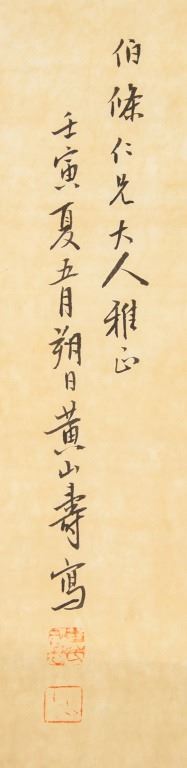 伯絛仁兄大人雅正
壬寅夏五月朔日黄山壽寫